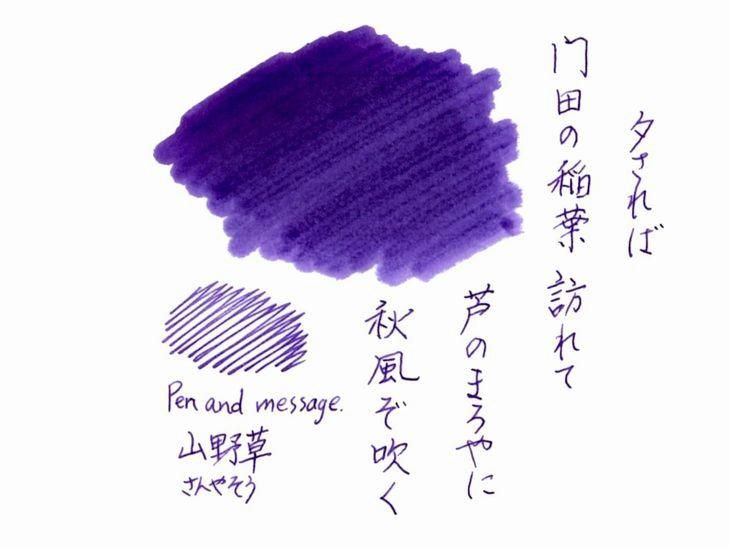 夕されば
門田の稲葉 訪れて
芦のまろやに
秋風ぞ吹く
Pen and message.
山野草
さんやそう